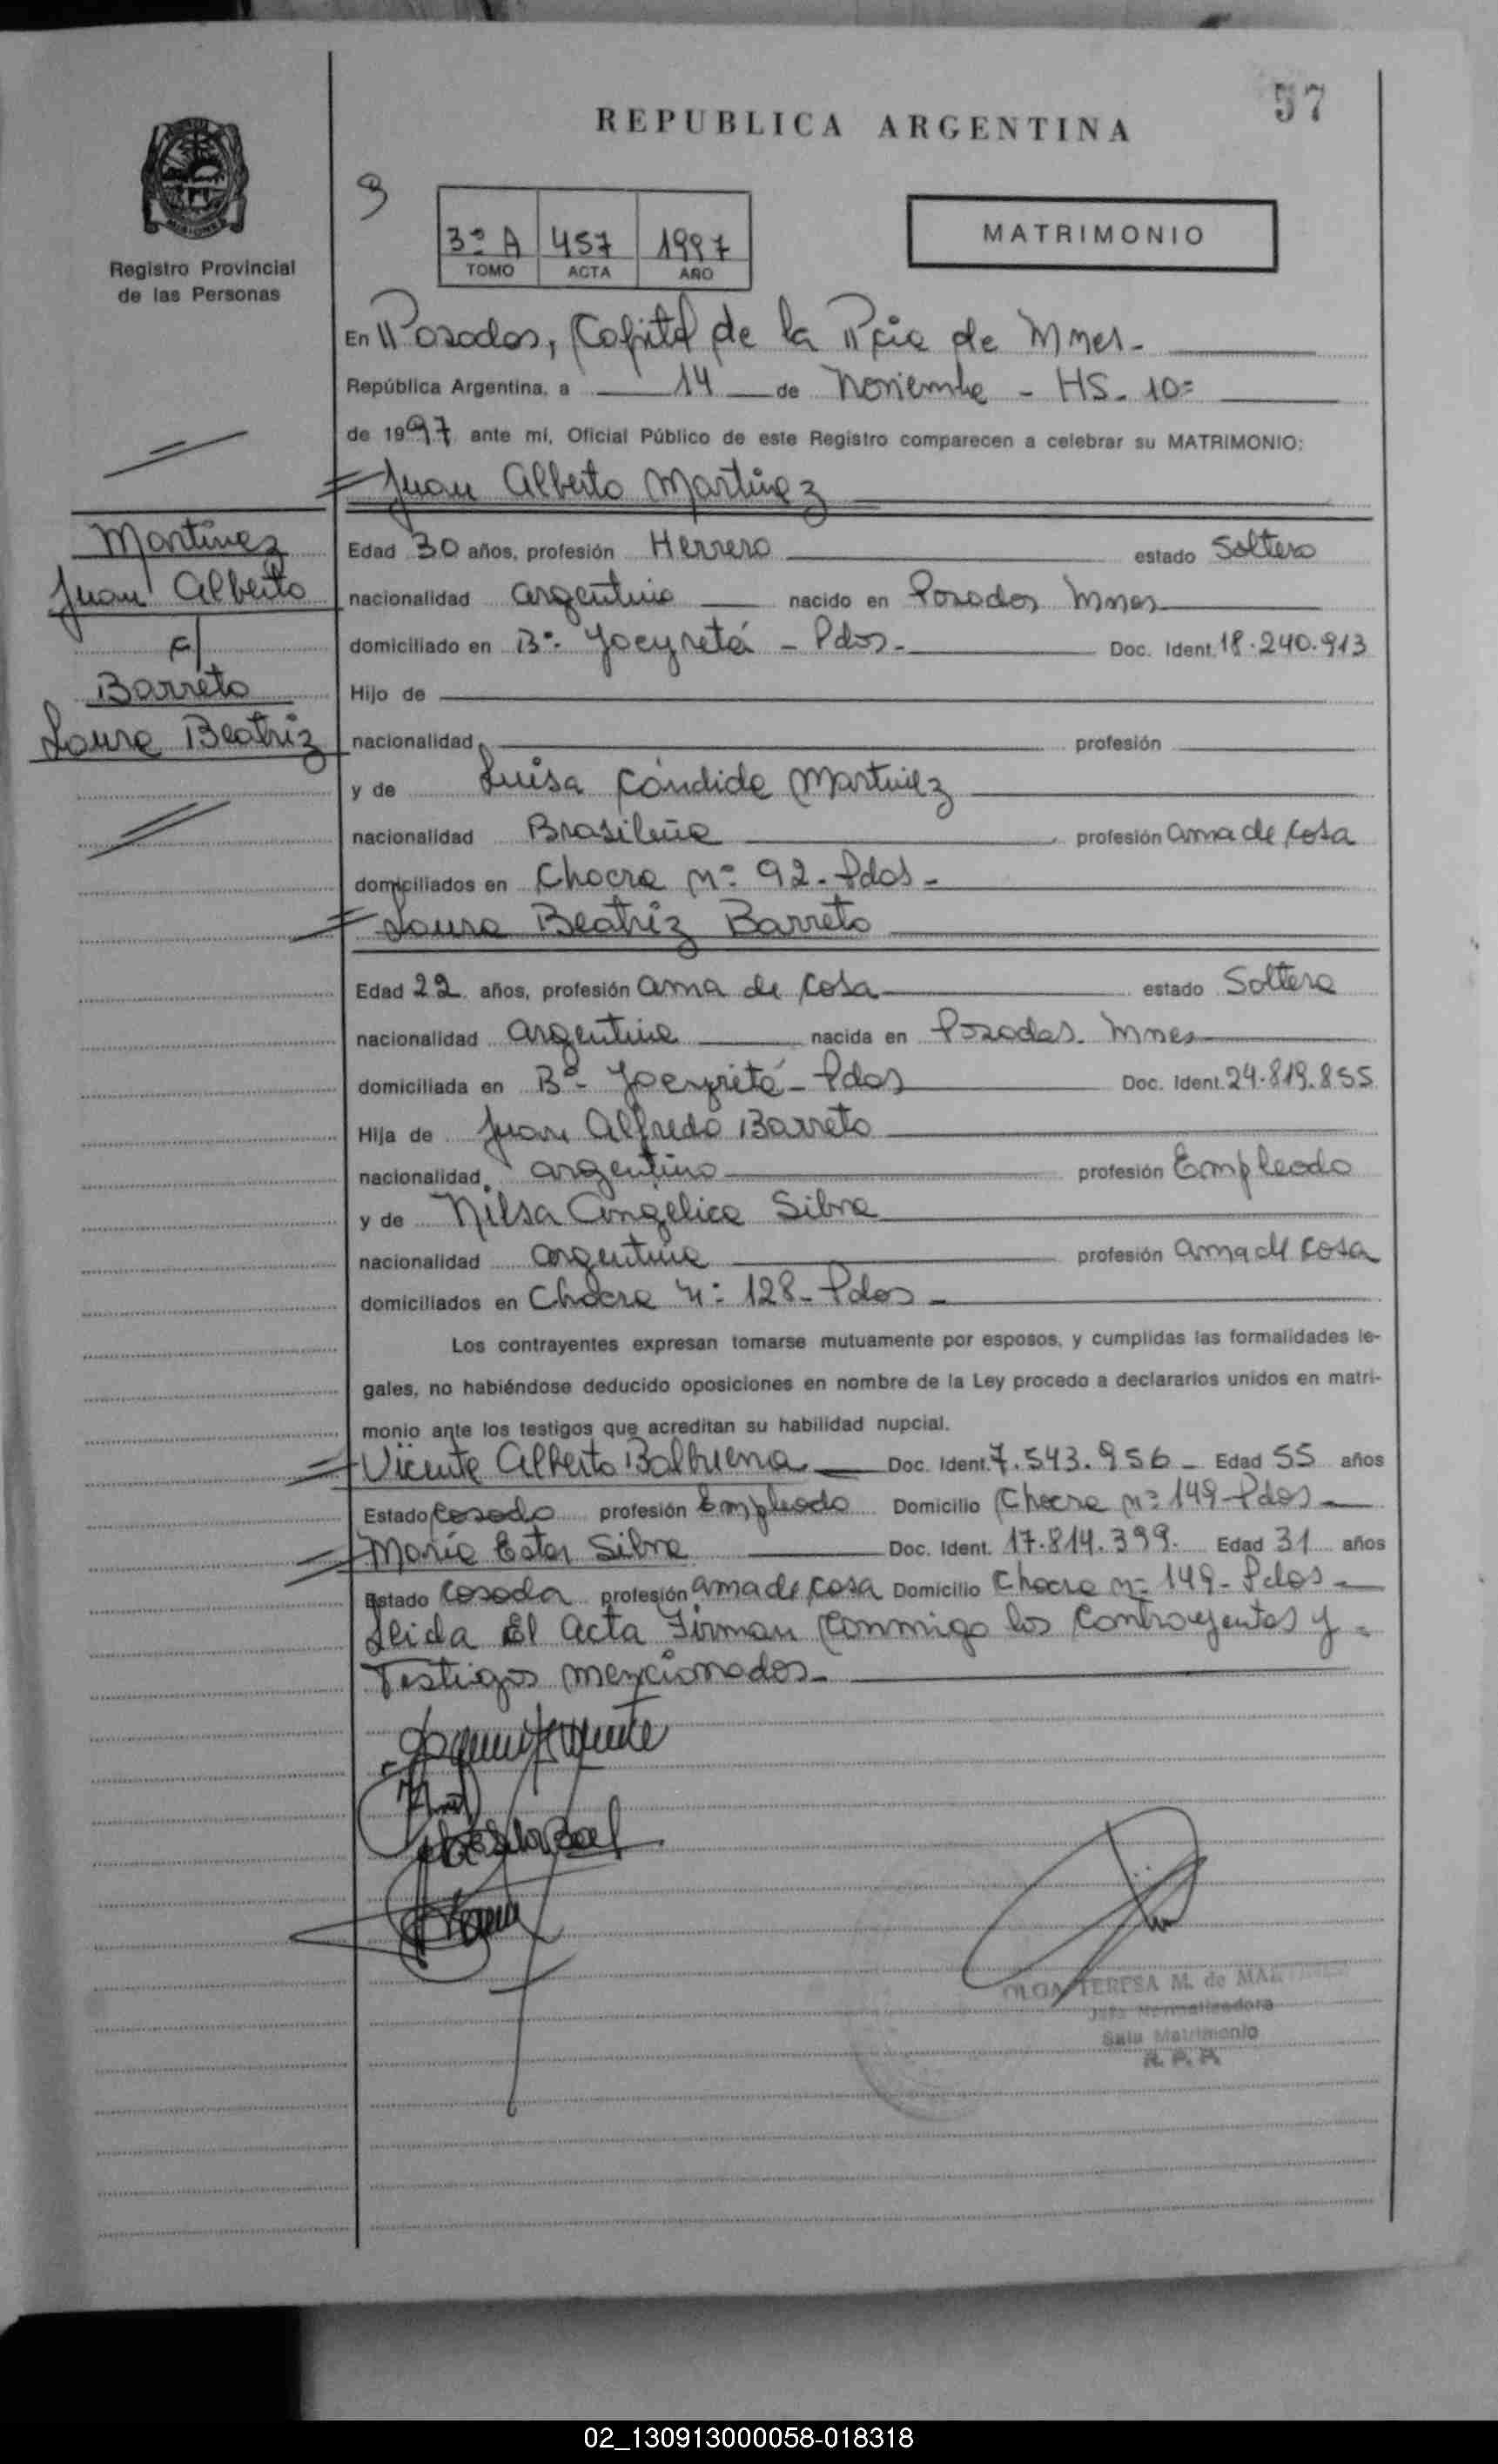 57
REPUBLICA ARGENTINA
MISIONES
Registro Provincial
de las Personas
3
3º A 457 1997
TOMO ACTA AÑO
MATRIMONIO
En Posadas, Capital de la Pcia de Mnes.
República Argentina, a 14 de Noviembre - HS. 10=
de 1997 ante mí, Oficial Público de este Registro comparecen a celebrar su MATRIMONIO:
Juan Alberto Martínez
Martínez
Juan Alberto
c/
Barreto
Laura Beatriz
Edad 30 años, profesión Herrero estado Soltero
nacionalidad argentino nacido en Posadas Mnes
domiciliado en Bº- Yacyretá - Pdas. Doc. Ident. 18.240.913
Hijo de
nacionalidad profesión
y de Luisa Cándida Martínez
nacionalidad Brasileña profesión ama de casa
domiciliados en Chacra nº 92 - Pdas -
Laura Beatriz Barreto
Edad 22 años, profesión ama de casa estado Soltera
nacionalidad argentina nacida en Posadas. Mnes
domiciliada en Bº- Yacyretá - Pdas Doc. Ident. 24.819.855
Hija de Juan Alfredo Barreto
nacionalidad argentino profesión Empleado
y de Nilsa Angélica Silva
nacionalidad argentina profesión ama de casa
domiciliados en Chacra nº 128 - Pdas -
Los contrayentes expresan tomarse mutuamente por esposos, y cumplidas las formalidades le-
gales, no habiéndose deducido oposiciones en nombre de la Ley procedo a declararlos unidos en matri-
monio ante los testigos que acreditan su habilidad nupcial.
Vicente Alberto Balbuena Doc. Ident. 7.543.956 - Edad 55 años
Estado casado profesión Empleado Domicilio Chacra nº 149 - Pdas
María Ester Silva Doc. Ident. 17.814.399. Edad 31 años
Estado casada profesión ama de casa Domicilio Chacra nº 149 - Pdas -
Leida El Acta Firman conmigo los contrayentes y
Testigos mencionados.
OLGA TERESA M. de MARTINEZ
Jefa Normalizadora
Sala Matrimonio
R. P. P.
02_130913000058-018318